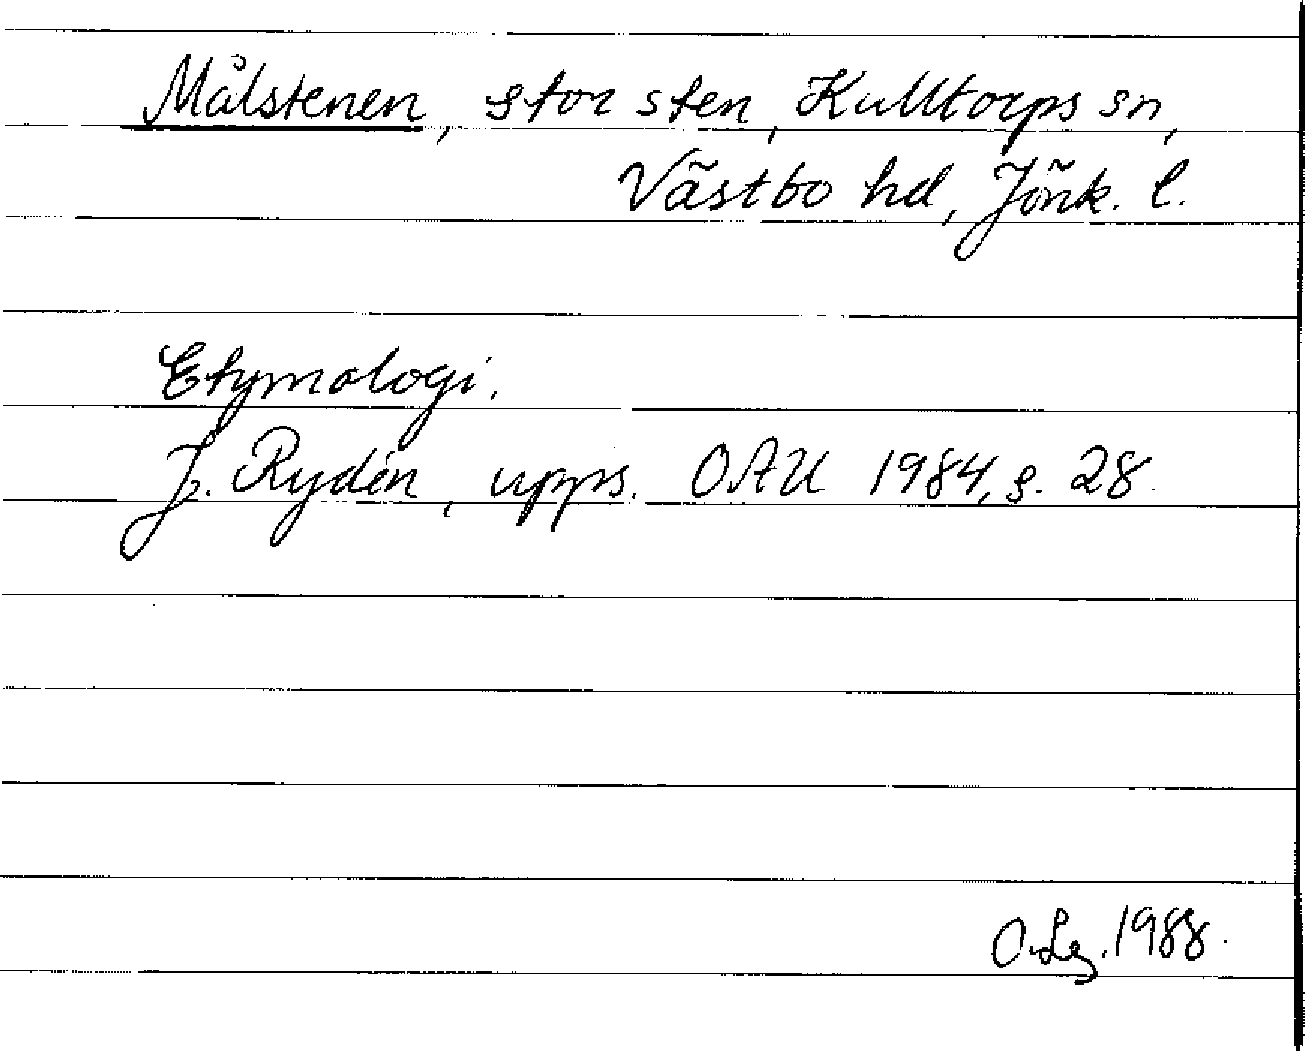 Målstenen, stor sten, Kulltorps sn,
Västbo hd, Jönk. l.
Etymologi.
J. Rydén, upps. OAU 1984, s. 28.
O. Lg. 1988.